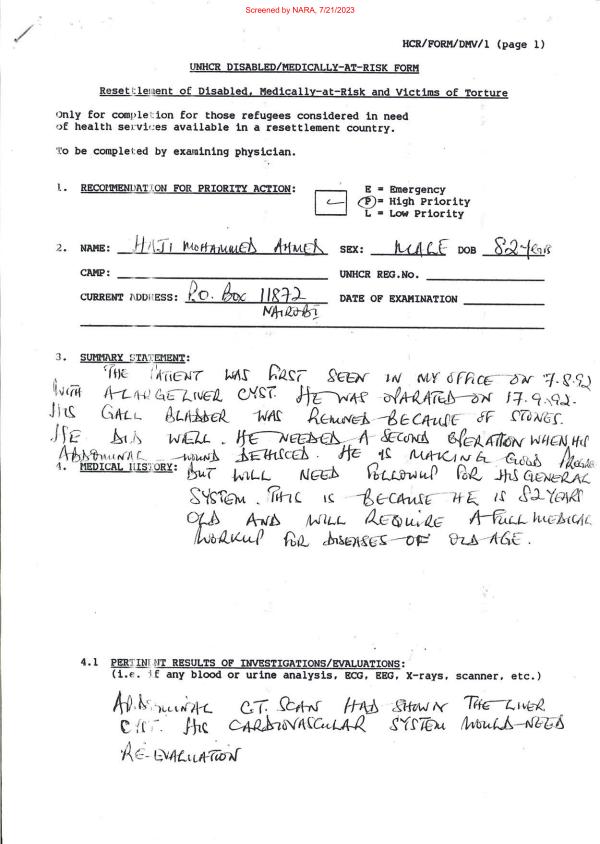 Screened by NARA, 7/21/2023
HCR/FORM/DMV/1 (page 1)
UNHCR DISABLED/MEDICALLY-AT-RISK FORM
Resettlement of Disabled, Medically-at-Risk and Victims of Torture
Only for completion for those refugees considered in need
of health services available in a resettlement country.
To be completed by examining physician.
1. RECOMMENDATION FOR PRIORITY ACTION:
E = Emergency
P = High Priority
L = Low Priority
2. NAME: HAJI MOHAMMED AHMED SEX: MALE DOB 82 YEARS
CAMP: UNHCR REG.No.
CURRENT ADDRESS: P.O. Box 11872 DATE OF EXAMINATION
NAIROBI
3. SUMMARY STATEMENT:
THE PATIENT WAS FIRST SEEN IN MY OFFICE ON 7.8.92
WITH A LARGE LIVER CYST. HE WAS OPARATED ON 17.9.92.
HIS GALL BLADDER WAS REMOVED BECAUSE OF STONES.
HE DID WELL. HE NEEDED A SECOND OPERATION WHEN HIS
ABDOMINAL WOUND DEHISCED. HE IS MAKING GOOD
4. MEDICAL HISTORY: BUT WILL NEED FOLLOWUP FOR HIS GENERAL
SYSTEM. THIS IS BECAUSE HE IS 82 YEARS
OLD AND WILL REQUIRE A FULL MEDICAL
WORKUP FOR DISEASES OF OLD AGE.
4.1 PERTINENT RESULTS OF INVESTIGATIONS/EVALUATIONS:
(i.e. if any blood or urine analysis, ECG, EEG, X-rays, scanner, etc.)
ABDOMINAL C.T. SCAN HAD SHOWN THE LIVER
CYST. HIS CARDIOVASCULAR SYSTEM WOULD NEED
RE-EVALUATION